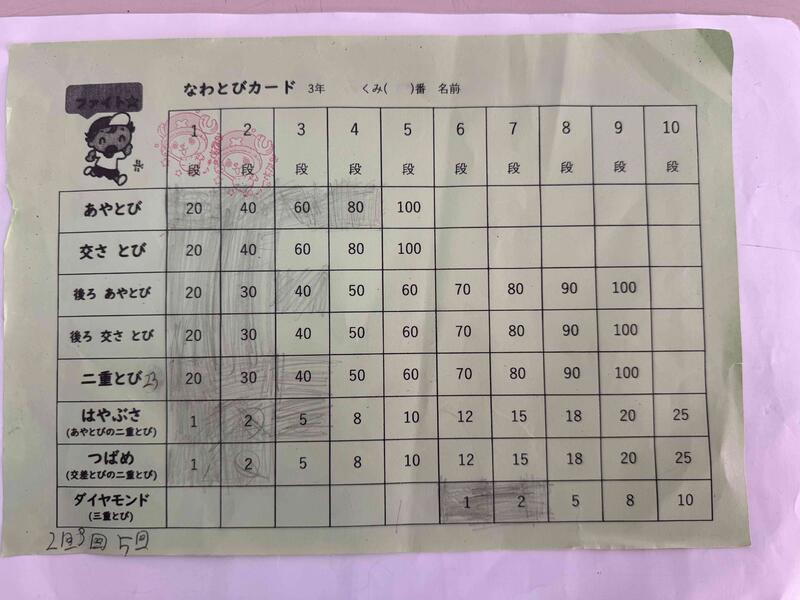 ファイト☆
なわとびカード 3年 くみ( )番 名前
1 2 3 4 5 6 7 8 9 10
段 段 段 段 段 段 段 段 段 段
あやとび 20 40 60 80 100
交さ とび 20 40 60 80 100
後ろ あやとび 20 30 40 50 60 70 80 90 100
後ろ 交さ とび 20 30 40 50 60 70 80 90 100
二重とび 23 20 30 40 50 60 70 80 90 100
はやぶさ 1 2 5 8 10 12 15 18 20 25
(あやとびの二重とび)
つばめ 1 2 5 8 10 12 15 18 20 25
(交差とびの二重とび)
ダイヤモンド 1 2 5 8 10
(三重とび)
2回 3回 5回